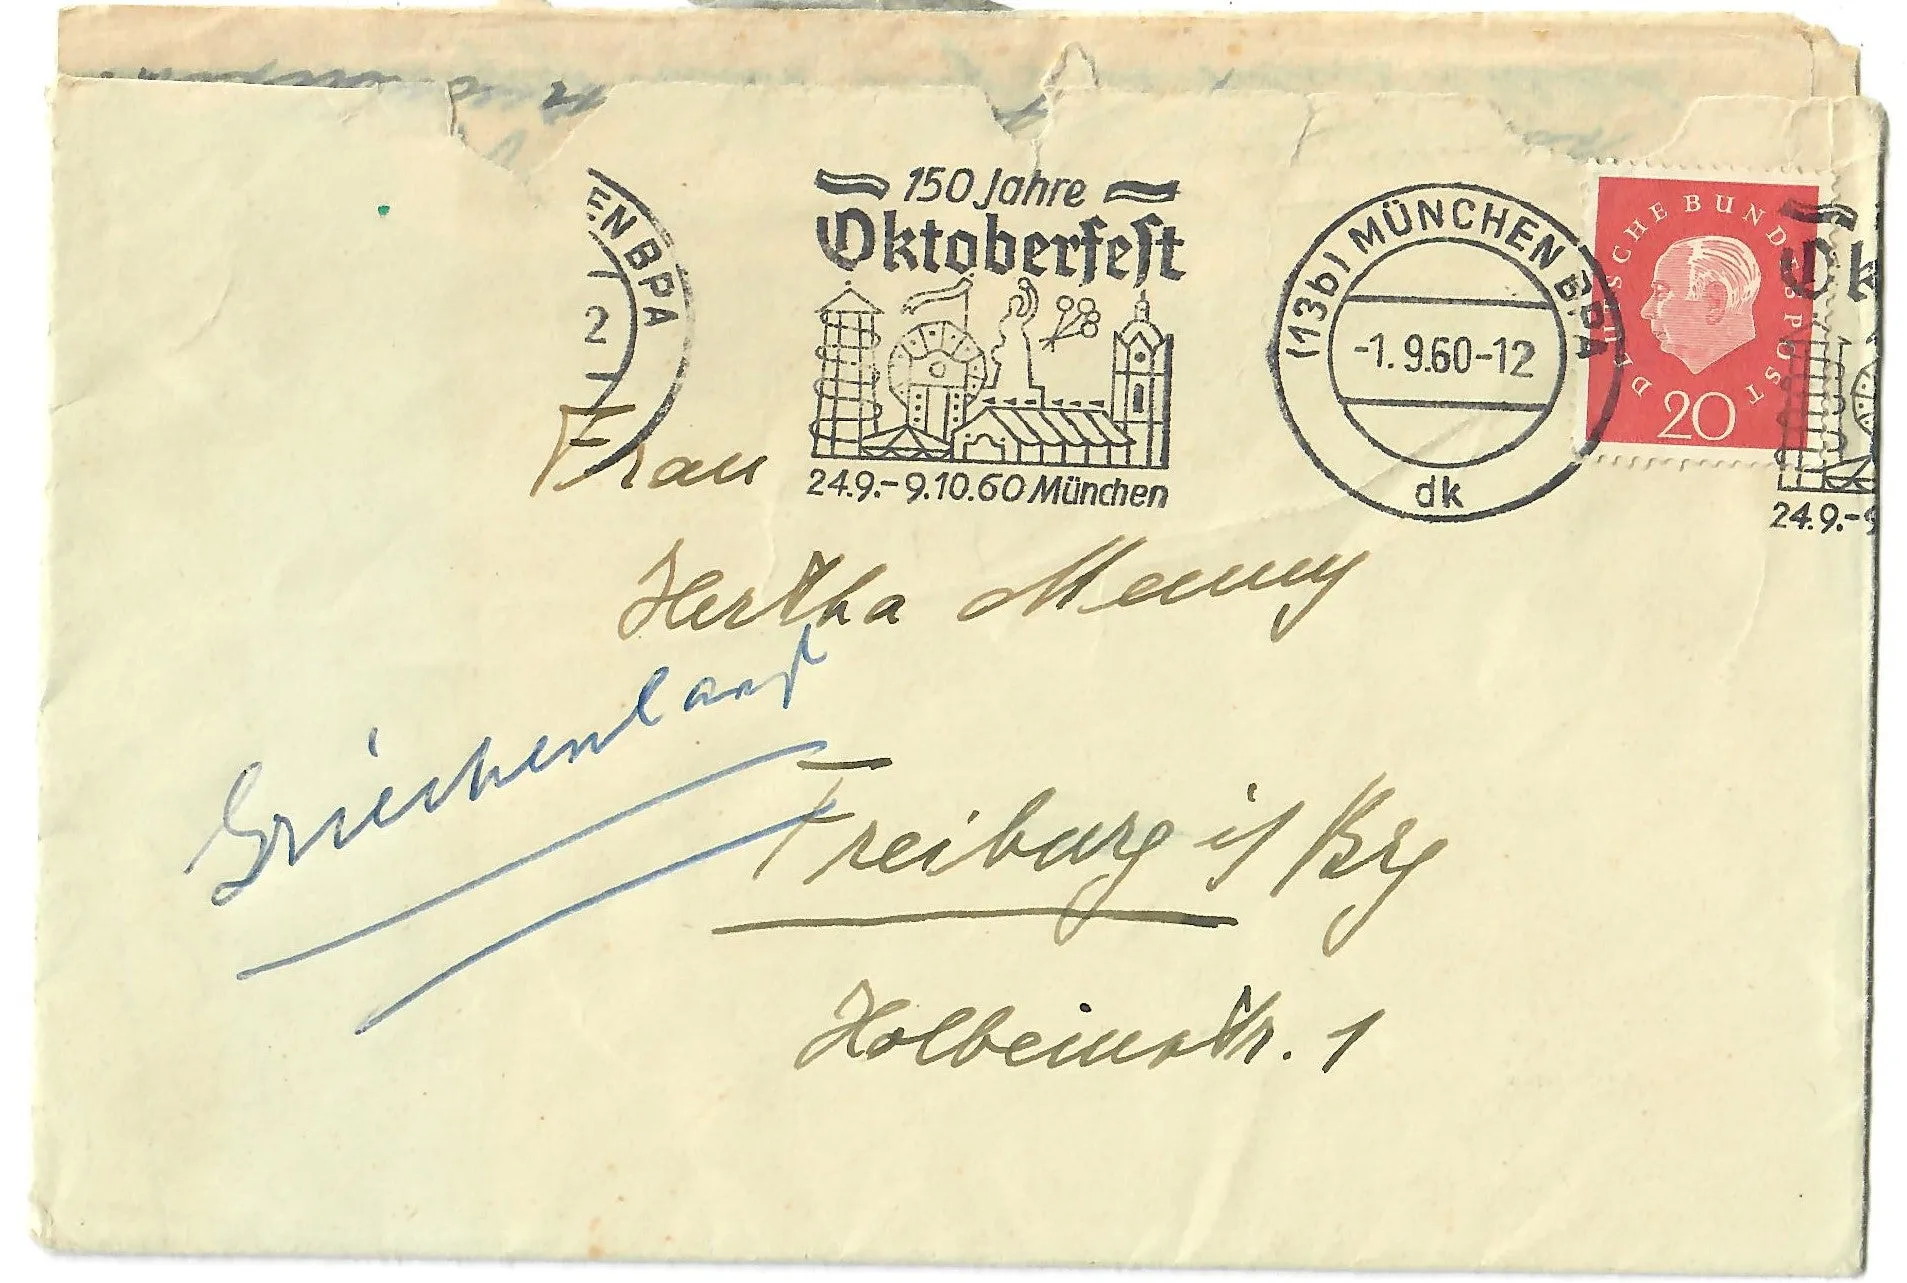 150 Jahre
Oktoberfest
24.9.-9.10.60 München
EN BPA
2
(13b) MÜNCHEN BPA
-1.9.60-12
dk
DEUTSCHE BUNDESPOST
20
Ok
24.9.-9
Frau
Hertha
Griechenland
Freiburg i/ Brg
Holbeinstr. 1